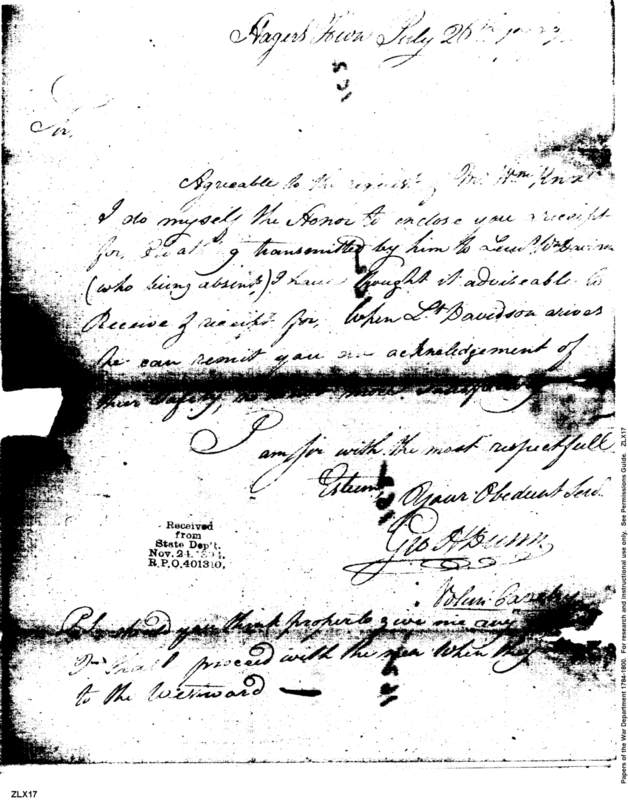 Hagers Town July 26th
Sir,
Agreable to the request of Mr. Wm. Knox
I do myself the Honor to enclose you a receipt
for transmitted by him to Lieut.
(who being absent) I have thought it adviseable to
Receive & receipt for, When Lt Davidson arives
he can remit you an acknoledgement of
their safety,
I am Sir with the most respectfull
Esteem Your Obedient Serv.
Geo H Dunn
Received
from
State Dep't.
Nov. 24,
R.P.O. 401310.
P.S. should you think proper to give me any
I proceed with the men When they
to the Westward
ZLX17
Papers of the War Department 1784-1800. For research and instructional use only. See Permissions Guide. ZLX17